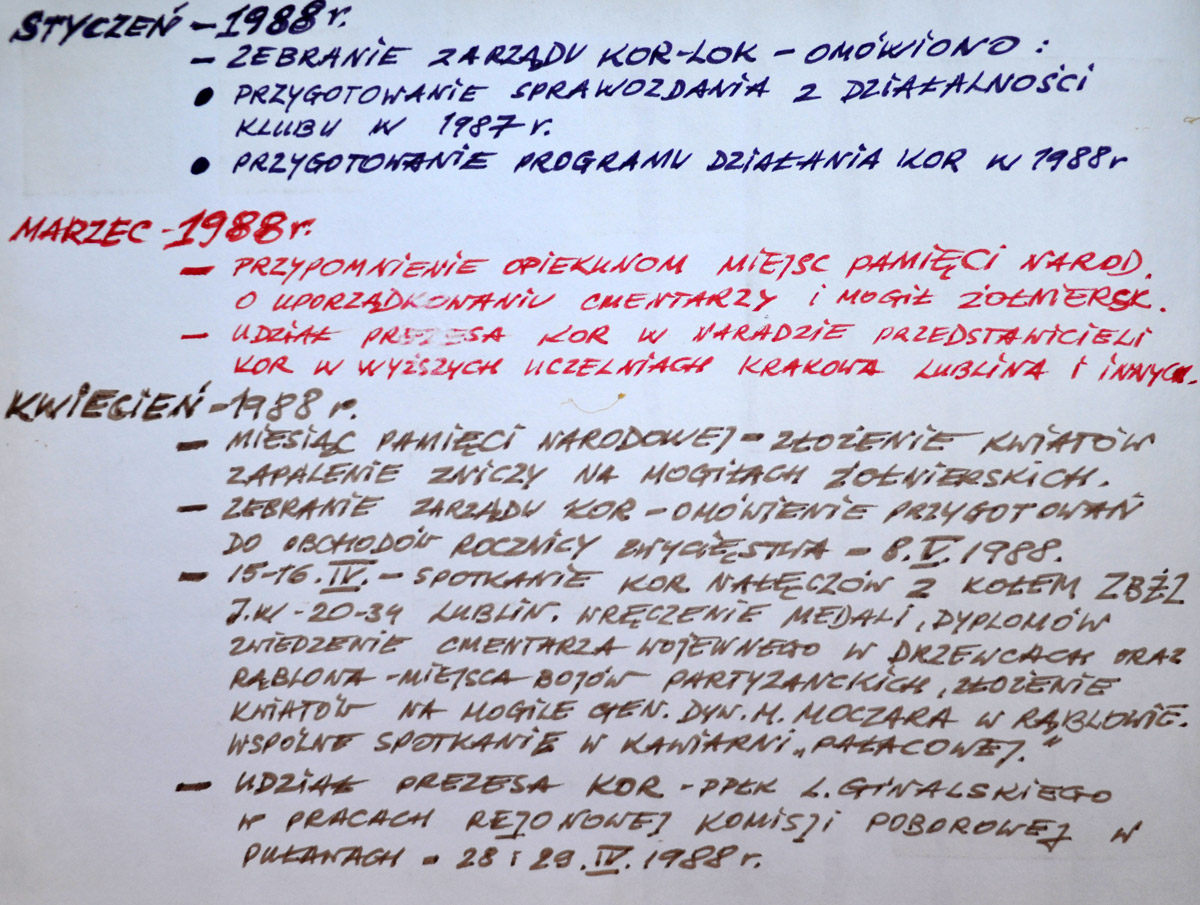 STYCZEŃ – 1988 r.
– ZEBRANIE ZARZĄDU KOR-LOK – OMÓWIONO :
● PRZYGOTOWANIE SPRAWOZDANIA Z DZIAŁALNOŚCI
KLUBU W 1987 r.
● PRZYGOTOWANIE PROGRAMU DZIAŁANIA KOR W 1988 r
MARZEC - 1988 r.
– PRZYPOMNIENIE OPIEKUNOM MIEJSC PAMIĘCI NAROD.
O UPORZĄDKOWANIU CMENTARZY I MOGIŁ ŻOŁNIERSK.
– UDZIAŁ PREZESA KOR W NARADZIE PRZEDSTAWICIELI
KOR W WYŻSZYCH UCZELNIACH KRAKOWA LUBLINA I INNYCH.
KWIECIEŃ - 1988 r.
– MIESIĄC PAMIĘCI NARODOWEJ – ZŁOŻENIE KWIATÓW
ZAPALENIE ZNICZY NA MOGIŁACH ŻOŁNIERSKICH.
– ZEBRANIE ZARZĄDU KOR – OMÓWIENIE PRZYGOTOWAŃ
DO OBCHODÓW ROCZNICY ZWYCIĘSTWA – 8.V.1988.
– 15-16.IV. – SPOTKANIE KOR NAŁĘCZÓW Z KOŁEM ZBŻZ
J.W - 20-34 LUBLIN. WRĘCZENIE MEDALI, DYPLOMÓW
ZWIEDZENIE CMENTARZA WOJENNEGO W DRZEWCACH ORAZ
RĄBLOWA - MIEJSCA BOJÓW PARTYZANCKICH, ZŁOŻENIE
KWIATÓW NA MOGILE GEN. DYW. M. MOCZARA W RĄBLOWIE.
WSPÓLNE SPOTKANIE W KAWIARNI „PAŁACOWEJ."
– UDZIAŁ PREZESA KOR - PPŁK L. GINALSKIEGO
W PRACACH REJONOWEJ KOMISJI POBOROWEJ W
PUŁAWACH – 28 i 29.IV.1988 r.